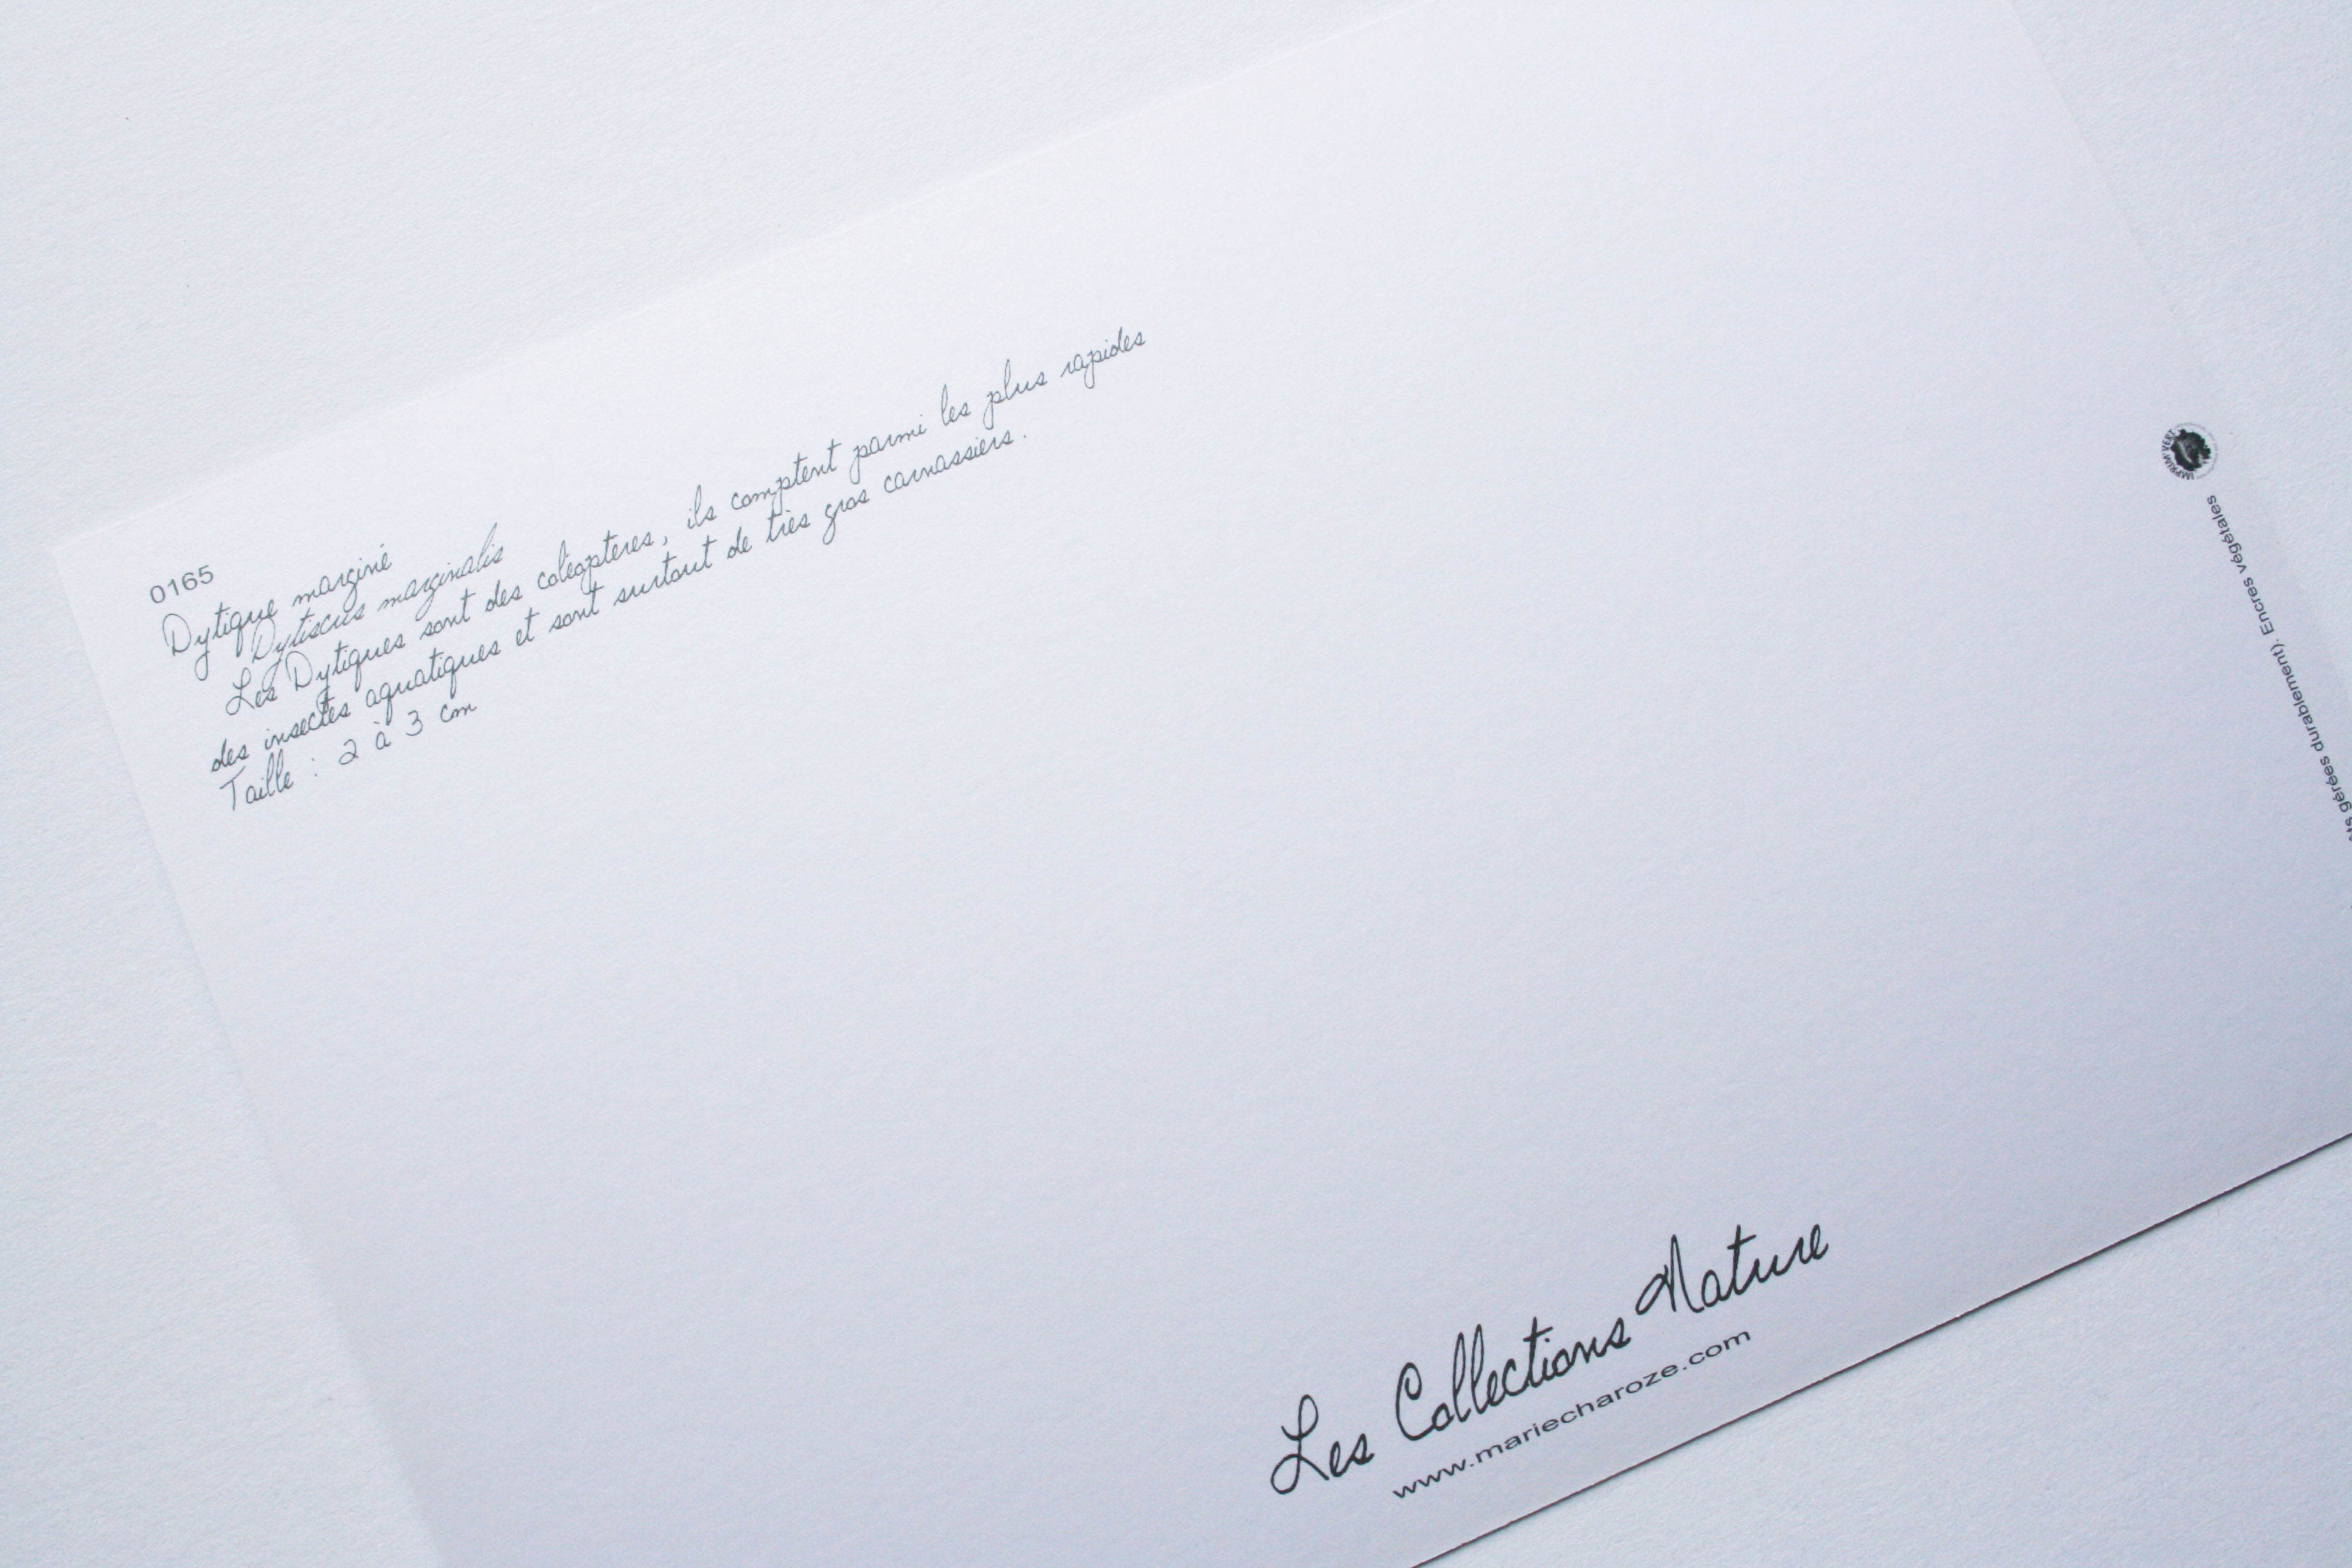 0165
Dytique marginé
Dytiscus marginalis
Les Dytiques sont des coléoptères, ils comptent parmi les plus rapides
des insectes aquatiques et sont surtout de très gros carnassiers.
Taille : 2 à 3 cm
Les Collections Nature
www.mariecharoze.com
IMPRIM'VERT
gérées durablement). Encres végétales